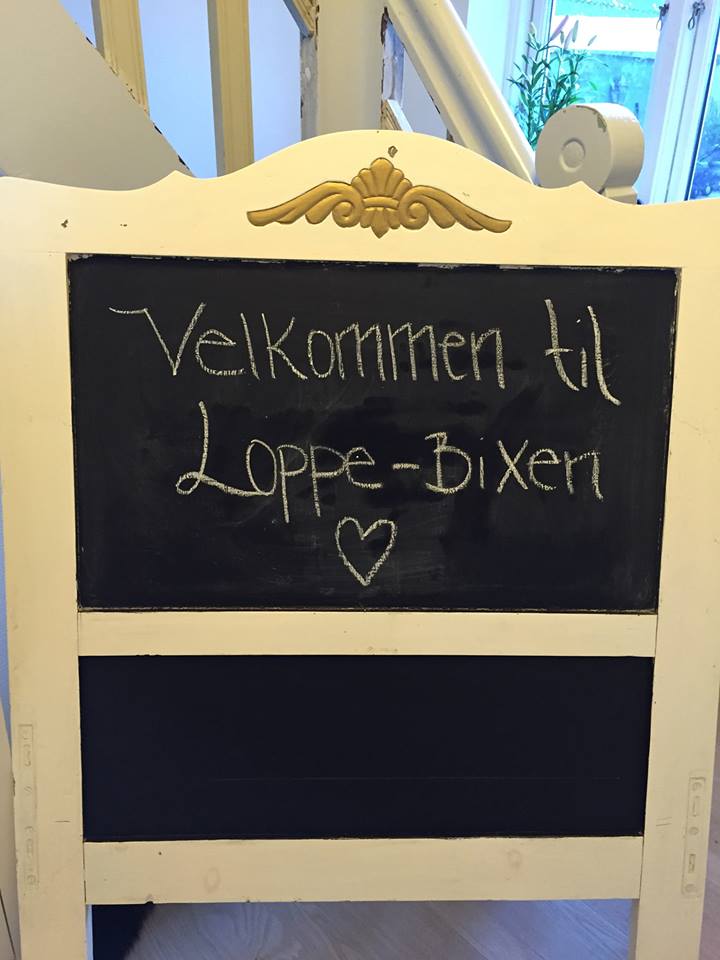 Velkommen til
Loppe-Bixen